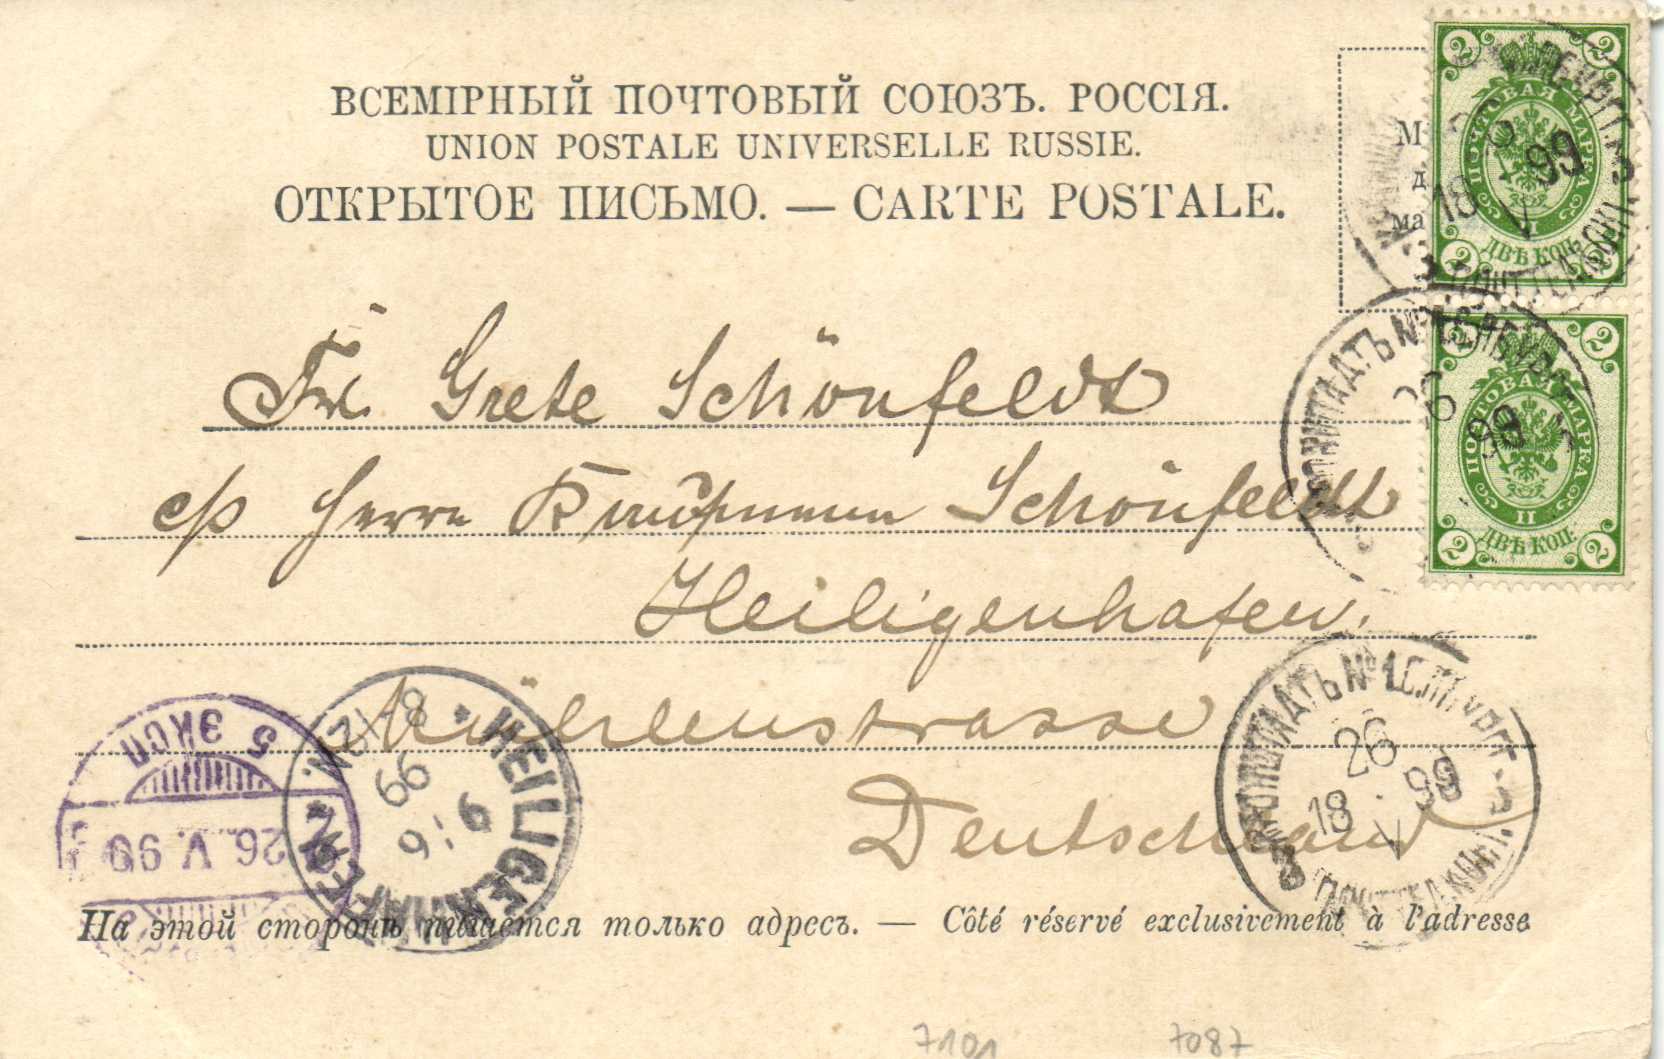 ВСЕМІРНЫЙ ПОЧТОВЫЙ СОЮЗЪ. РОССІЯ.
UNION POSTALE UNIVERSELLE RUSSIE.
ОТКРЫТОЕ ПИСЬМО. — CARTE POSTALE.
М
д
ма
2 2
ПОЧТОВАЯ МАРКА
ДВѢ КОП.
2 2
18 V 99
2 2
ПОЧТОВАЯ МАРКА
II
ДВѢ КОП.
2 2
КРОНШТАДТЪ № 1
26
99
Frl. Grete Schönfeldt
c/p Herrn Kaufmann Schönfeldt
Heiligenhafen.
Mühlenstrasse
Deutschland
КРОНШТАДТЪ № 1 С.П.БУРГ.
26
18 V 99
3
HEILIGENHAFEN
9/6
99
8-12N.
5 ЭКСП
26. V. 99
На этой сторонѣ пишется только адресъ. — Côté réservé exclusivement à l'adresse
7101 7087